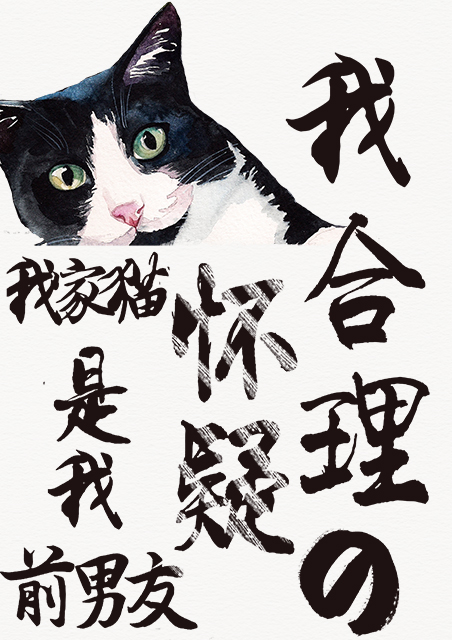 我合理の
怀疑
我家猫
是
我
前男友